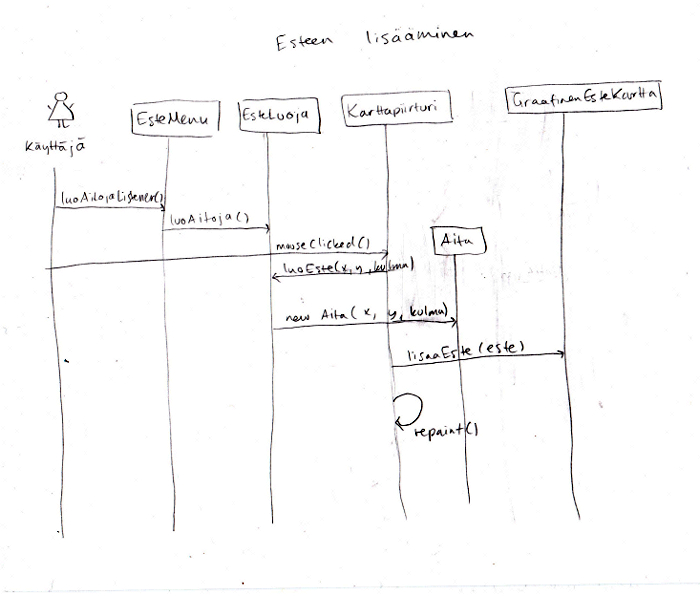 Esteen lisääminen
Käyttäjä
EsteMenu
EsteLuoja
Karttapiirturi
GraafinenEsteKartta
luoAitojaListener()
luoAitoja()
mouseClicked()
Aita
luoEste(x, y, kulma)
new Aita(x, y, kulma)
lisaaEste(este)
repaint()